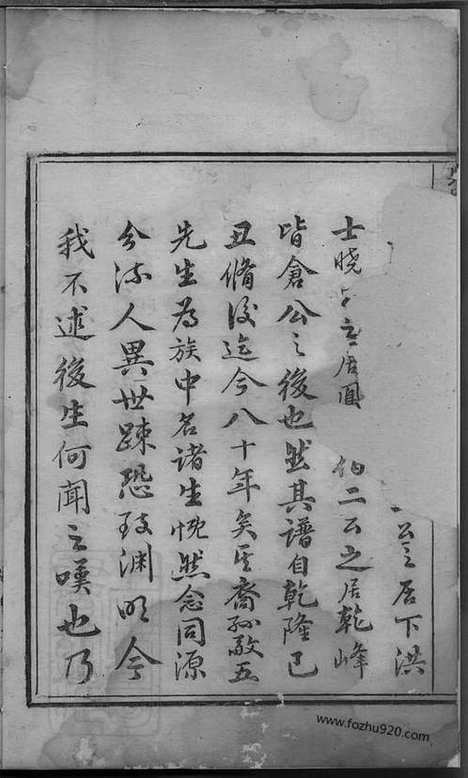 公之居下洪
士曉
居圓
伯二公之居乾峰
皆倉公之後也然其譜自乾隆己
丑脩後迄今八十年矣其裔孫敬五
先生為族中名諸生慨然念同源
分流人異世疎恐致淵明今
我不述後生何聞之嘆也乃
www.fozhu920.com